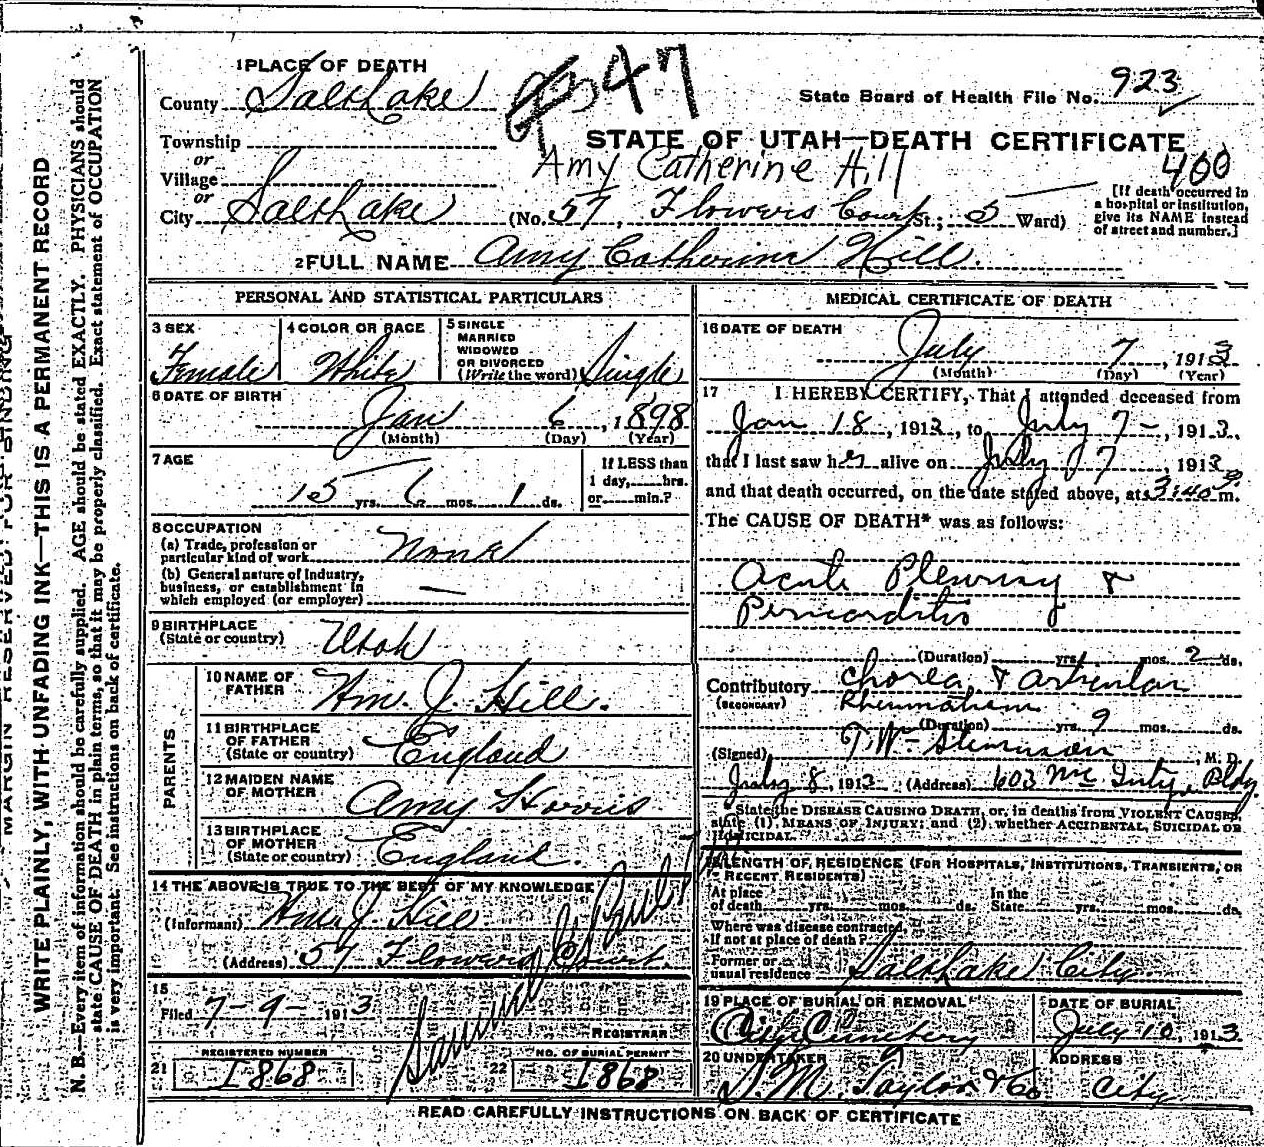 MARGIN RESERVED FOR BINDING
WRITE PLAINLY, WITH UNFADING INK—THIS IS A PERMANENT RECORD
N. B.—Every item of information should be carefully supplied. AGE should be stated EXACTLY. PHYSICIANS should
state CAUSE OF DEATH in plain terms, so that it may be properly classified. Exact statement of OCCUPATION
is very important. See instructions on back of certificate.
1 PLACE OF DEATH
County Salt Lake
47
State Board of Health File No. 923
Township
or
Village
or
City Salt Lake
STATE OF UTAH—DEATH CERTIFICATE
Amy Catherine Hill
400
(No. 57, Flowers Court St.; 5 Ward)
[If death occurred in
a hospital or institution,
give its NAME instead
of street and number.]
2 FULL NAME Amy Catherine Hill.
PERSONAL AND STATISTICAL PARTICULARS
3 SEX
Female
4 COLOR OR RACE
White
5 SINGLE
MARRIED
WIDOWED
OR DIVORCED
(Write the word) Single
6 DATE OF BIRTH
Jan 6, 1898
(Month) (Day) (Year)
7 AGE
15 yrs. 6 mos. 1 ds.
If LESS than
1 day, hrs.
or min.?
8 OCCUPATION
(a) Trade, profession or
particular kind of work None
(b) General nature of Industry,
business, or establishment in
which employed (or employer) —
9 BIRTHPLACE
(State or country) Utah
PARENTS
10 NAME OF
FATHER Wm. J. Hill.
11 BIRTHPLACE
OF FATHER
(State or country) England
12 MAIDEN NAME
OF MOTHER Amy Harris
13 BIRTHPLACE
OF MOTHER
(State or country) England.
14 THE ABOVE IS TRUE TO THE BEST OF MY KNOWLEDGE
(Informant) Wm J. Hill
(Address) 57 Flowers Court.
15
Filed 7-9-1913
Samuel G. Paul
REGISTRAR
REGISTERED NUMBER
21 1868
NO. OF BURIAL PERMIT
22 1868
MEDICAL CERTIFICATE OF DEATH
16 DATE OF DEATH
July 7, 1913
(Month) (Day) (Year)
17 I HEREBY CERTIFY, That I attended deceased from
Jan 18, 1913, to July 7-, 1913,
that I last saw her alive on July 7, 1913
and that death occurred, on the date stated above, at 3:40 m.
The CAUSE OF DEATH* was as follows:
Acute Pleurisy &
Pericarditis
(Duration) yrs. mos. 2 ds.
Contributory Chorea & articular
(SECONDARY) Rheumatism
(Duration) yrs. 9 mos. ds.
(Signed) T. W. Stevenson, M. D.
July 8, 1913 (Address) 603 Mc Inty Bldg.
State the DISEASE CAUSING DEATH, or, in deaths from VIOLENT CAUSES,
state (1). MEANS OF INJURY; and (2). whether ACCIDENTAL, SUICIDAL OR
HOMICIDAL.
LENGTH OF RESIDENCE (FOR HOSPITALS, INSTITUTIONS, TRANSIENTS, OR
RECENT RESIDENTS)
At place
of death yrs. mos. ds.
In the
State yrs. mos. ds.
Where was disease contracted,
If not at place of death?
Former or
usual residence Salt Lake City
19 PLACE OF BURIAL OR REMOVAL
City Cemetery
DATE OF BURIAL
July 10, 1913
20 UNDERTAKER
S. M. Taylor & Co
ADDRESS
City
READ CAREFULLY INSTRUCTIONS ON BACK OF CERTIFICATE